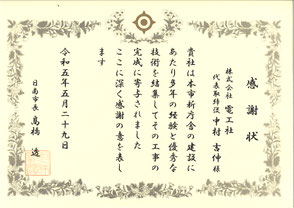 感謝状
株式会社 電工社
代表取締役 中村吉伸 様
貴社は本市新庁舎の建設に
あたり多年の経験と優秀な
技術を結集してその工事の
完成に寄与されました
ここに深く感謝の意を表し
ます
令和五年五月二十九日
日南市長 髙橋 透